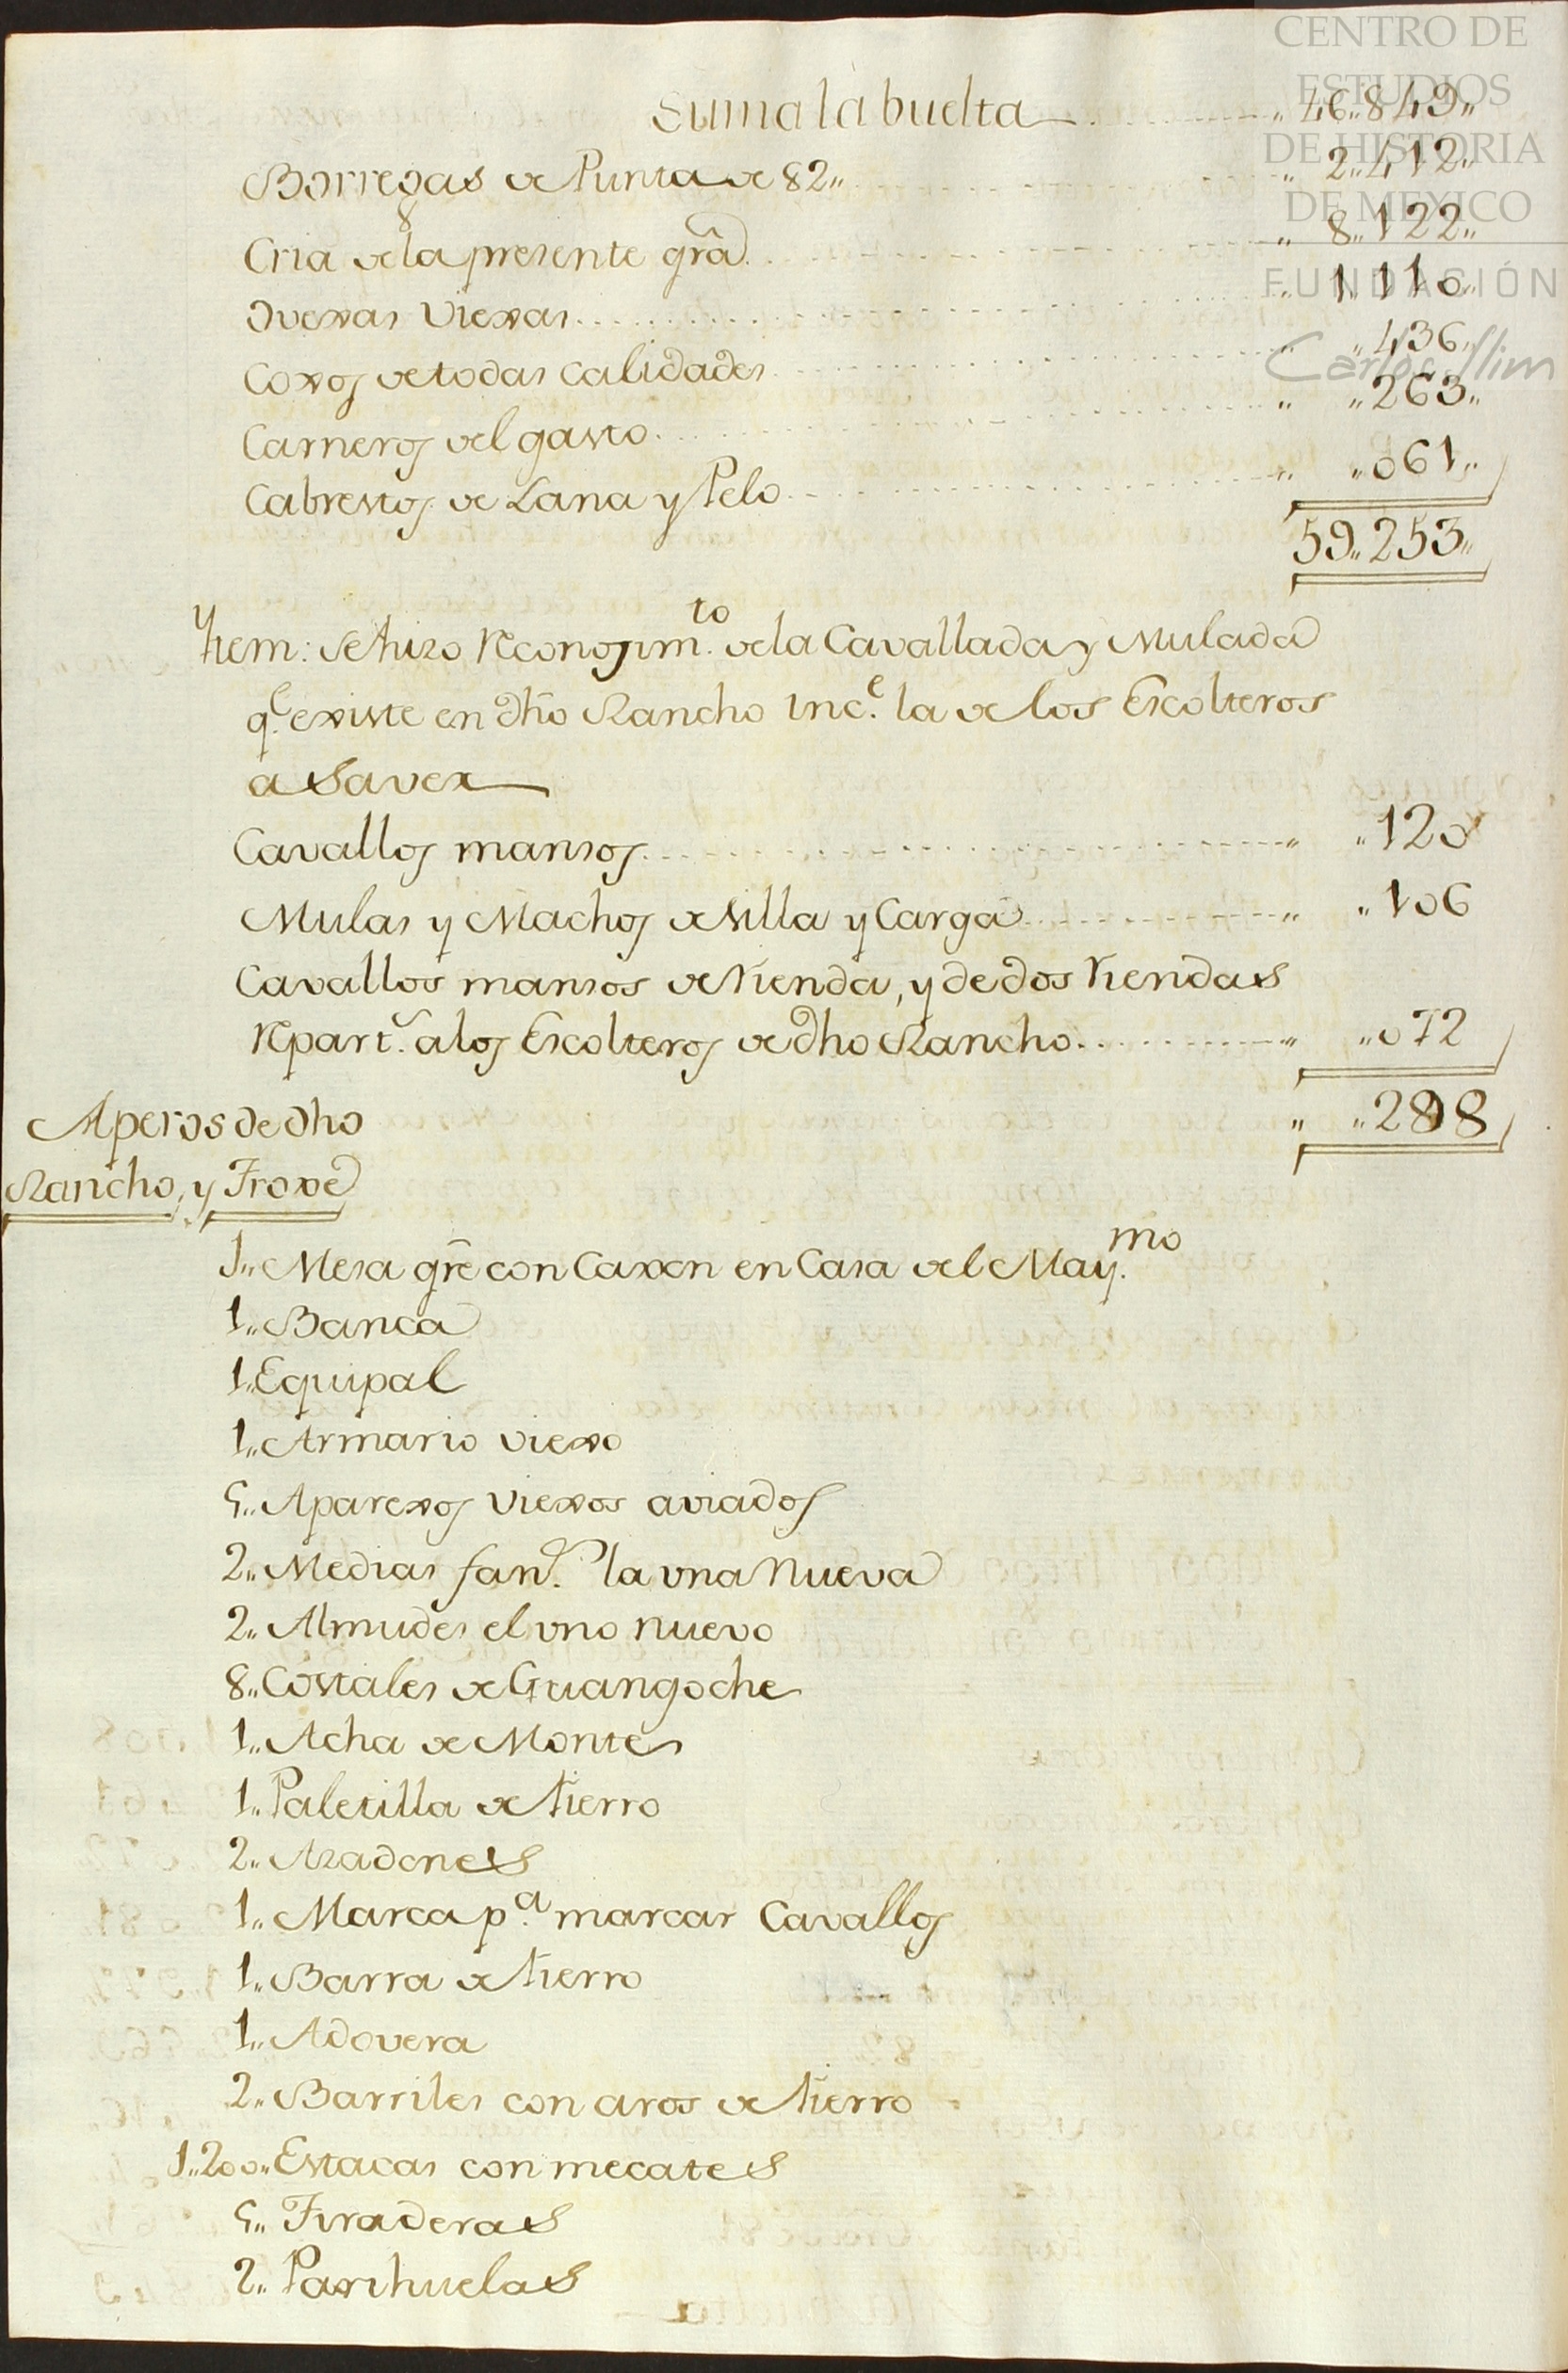 CENTRO DE
ESTUDIOS
DE HISTORIA
DE MEXICO
FUNDACIÓN
Carlos Slim
Suma la buelta „ 46„849„
Borregas de Punta de 82„ „ 2„412„
Cria de la presente grã „ 8„122„
Ovexas Viexas „ 1„110„
Coxos de todas calidades „ „436„
Carneros del gasto „ „263„
Cabrestos de Lana y Pelo „ „061„
59„253„
Ytem: Se hizo Reconozim.to de la Cavallada y Mulada
q.e existe en dho Rancho inc.e la de los Escolteros
a Saver
Cavallos mansos „ „120
Mulas y Machos de silla y Carga „ „106
Cavallos mansos de rienda, y de dos riendas
repart.s a los Escolteros de dho Rancho „ „072
„ „298
Aperos de dho
Rancho, y Troxe
1„ Mesa grẽ con Caxon en Casa del May.mo
1„ Banca
1„ Equipal
1„ Armario viexo
5„ Aparexos viexos aviados
2„ Medias fan.s la una nueva
2„ Almudes el uno nuevo
8„ Costales de Guangoche
1„ Acha de Montes
1„ Paletilla de fierro
2„ Azadones
1„ Marca p.a marcar Cavallos
1„ Barra de fierro
1„ Adovera
2„ Barriles con aros de fierro
1„200„ Estacas con mecates
5„ Tiraderas
2„ Parihuelas